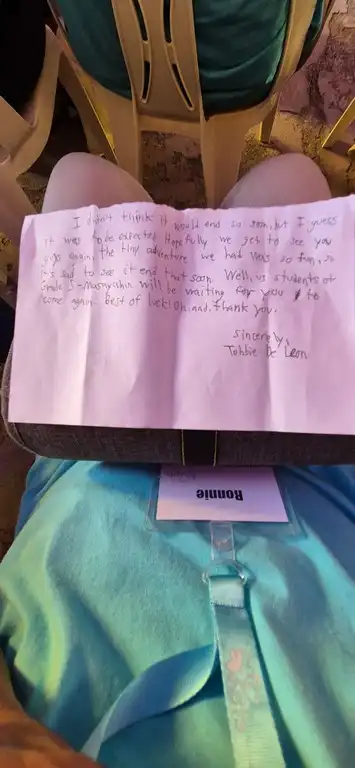 I didn't think it would end so soon, but I guess
it was to be expected. Hopefully we get to see you
guys again, the tiny adventure we had was so fun, so
it's sad to see it end that soon. Well, us students of
Grade 5 - will be waiting for you to
come again. best of luck! Oh, and, thank you.
Sincerely,
De Leon
Ronnie